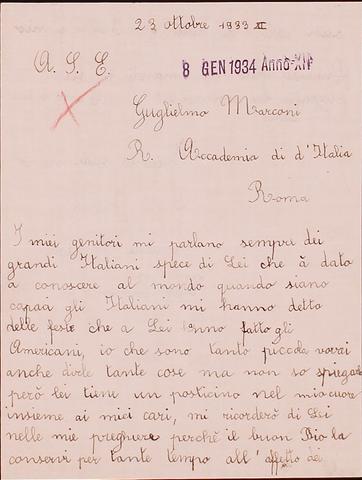 23 ottobre 1933 XI
A. S. E.
8 GEN 1934 Anno-XII
Guglielmo Marconi
R. Accademia di d'Italia
Roma
I miei genitori mi parlano sempre dei
grandi Italiani spece di Lei che à dato
a conoscere al mondo quando siano
capaci gli Italiani mi hanno detto
delle feste che a Lei ànno fatto gli
Americani, io che sono tanto piccola vorrei
anche dirle tante cose ma non so spiegare
però lei tiene un posticino nel mio cuore
insieme ai miei cari, mi ricorderò di Lei
nelle mie preghiere perchè il buon Dio la
conservi per tante tempo all'affetto dei